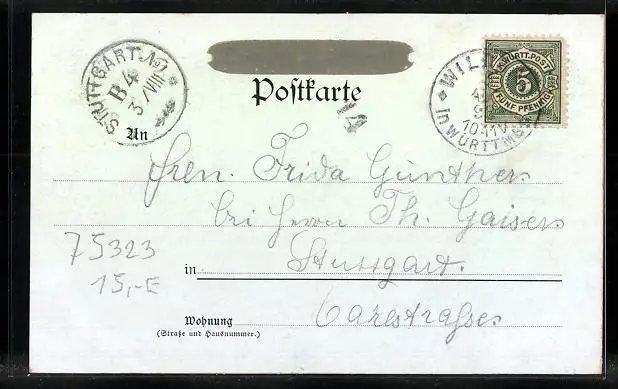 STUTTGART. No 1
B 4
3/VIII
Postkarte
K.WÜRTT.POST
5
FÜNF PFENNIG
WIL
10-11V
in WÜRTTM
An
Frln. Frida Günther
bei Herrn Th. Gaiser
in Stuttgart.
Wohnung Carlstrasse
(Straße und Hausnummer.)
75323
15,-E